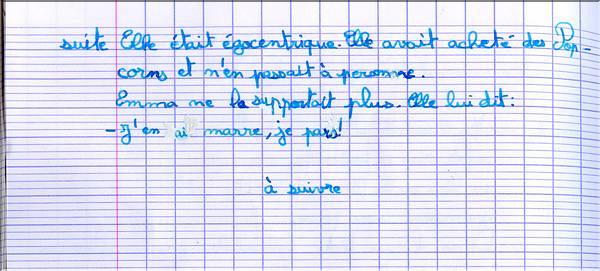 suite Elle était égocentrique. Elle avait acheté des Pop-
corns et n'en passait à personne.
Emma ne la supportait plus. Elle lui dit:
- J'en ai marre, je pars!
à suivre